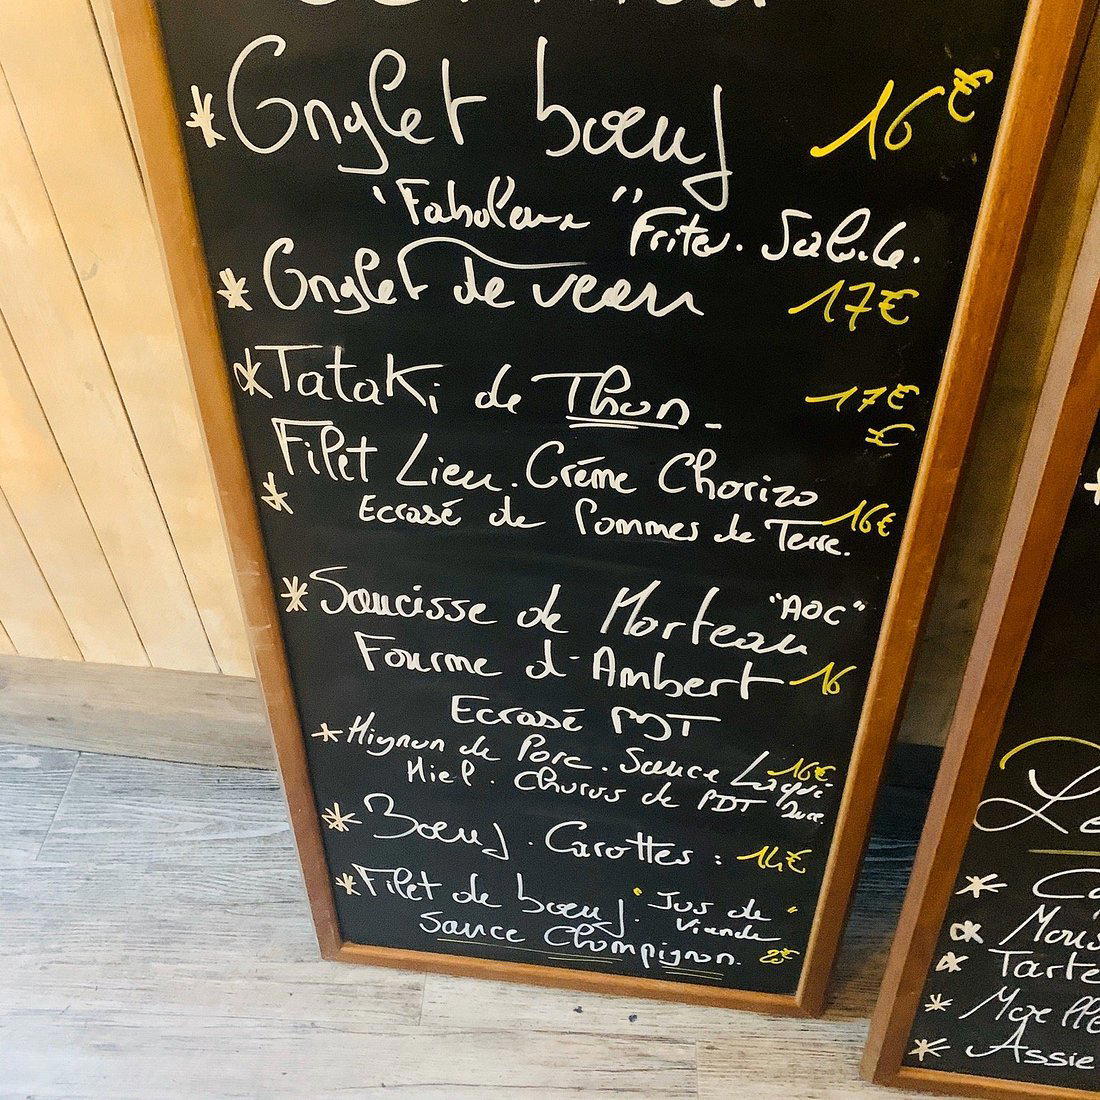 * Onglet bœuf 16€
"Fabuleux" Frites. Salade.
* Onglet de veau 17€
* Tataki de Thon - 17€
€
* Filet Lieu. Crème Chorizo
Ecrasé de Pommes de Terre. 16€
* Saucisse de Morteau "AOC"
Fourme d'Ambert 16
Ecrasé PDT
* Mignon de Porc. Sauce 16€
Miel. Churos de PDT
* Bœuf. Carottes : 14€
* Filet de bœuf. "Jus de
Viande"
Sauce Champignon. 25€
Le
* Ca
* Mous
* Tarte
* Moelle
* Assie